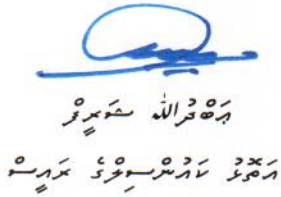 ޢަބްދުﷲ ޝަރީފް
އަތޮޅު ކައުންސިލްގެ ރައީސް